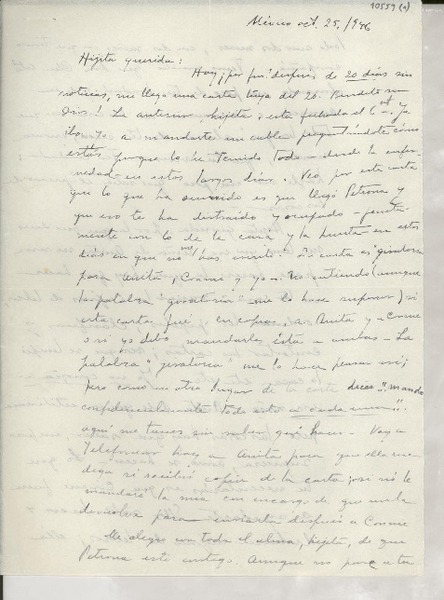 10559 (1)
México oct. 25, /946
Hijita querida:
Hoy ¡por fin! después de 20 días sin
noticias, me llega una carta tuya del 26. Bendito sea
Dios! La anterior, hijita, está fechada el 6 oct. Ya
iba yo a mandarte un cable preguntándote cómo
estás porque lo he temido todo – desde la enfer-
medad – en estos largos días. Veo, por esta carta
que lo que ha ocurrido es que llegó Petrona y
que eso te ha distraído y ocupado –
mente con lo de la casa y la huerta – en estos
días en que no me has escrito. Tu carta es "giratoria"
para Anita, Cosme y yo – No entiendo (aunque
la palabra "giratoria" me lo hace suponer) si
esta carta fué en copias, a Anita y a Cosme
o si yo debo mandarles ésta a ambos – La
palabra "giratoria" me lo hace pensar así;
pero como en otro lugar de la carta dices: "mando
confidencialmente todo esto a cada uno":
aquí me tienes sin saber qué hacer – Voy a
telefonear hoy a Anita para que ella me
diga si recibió copia de la carta; si nó le
mandaré la mía con encargo de que me la
devuelva para enviarla después a Cosme
Me alegro con toda el alma, hijita, de que
Petrona esté contigo. Aunque no para a tu